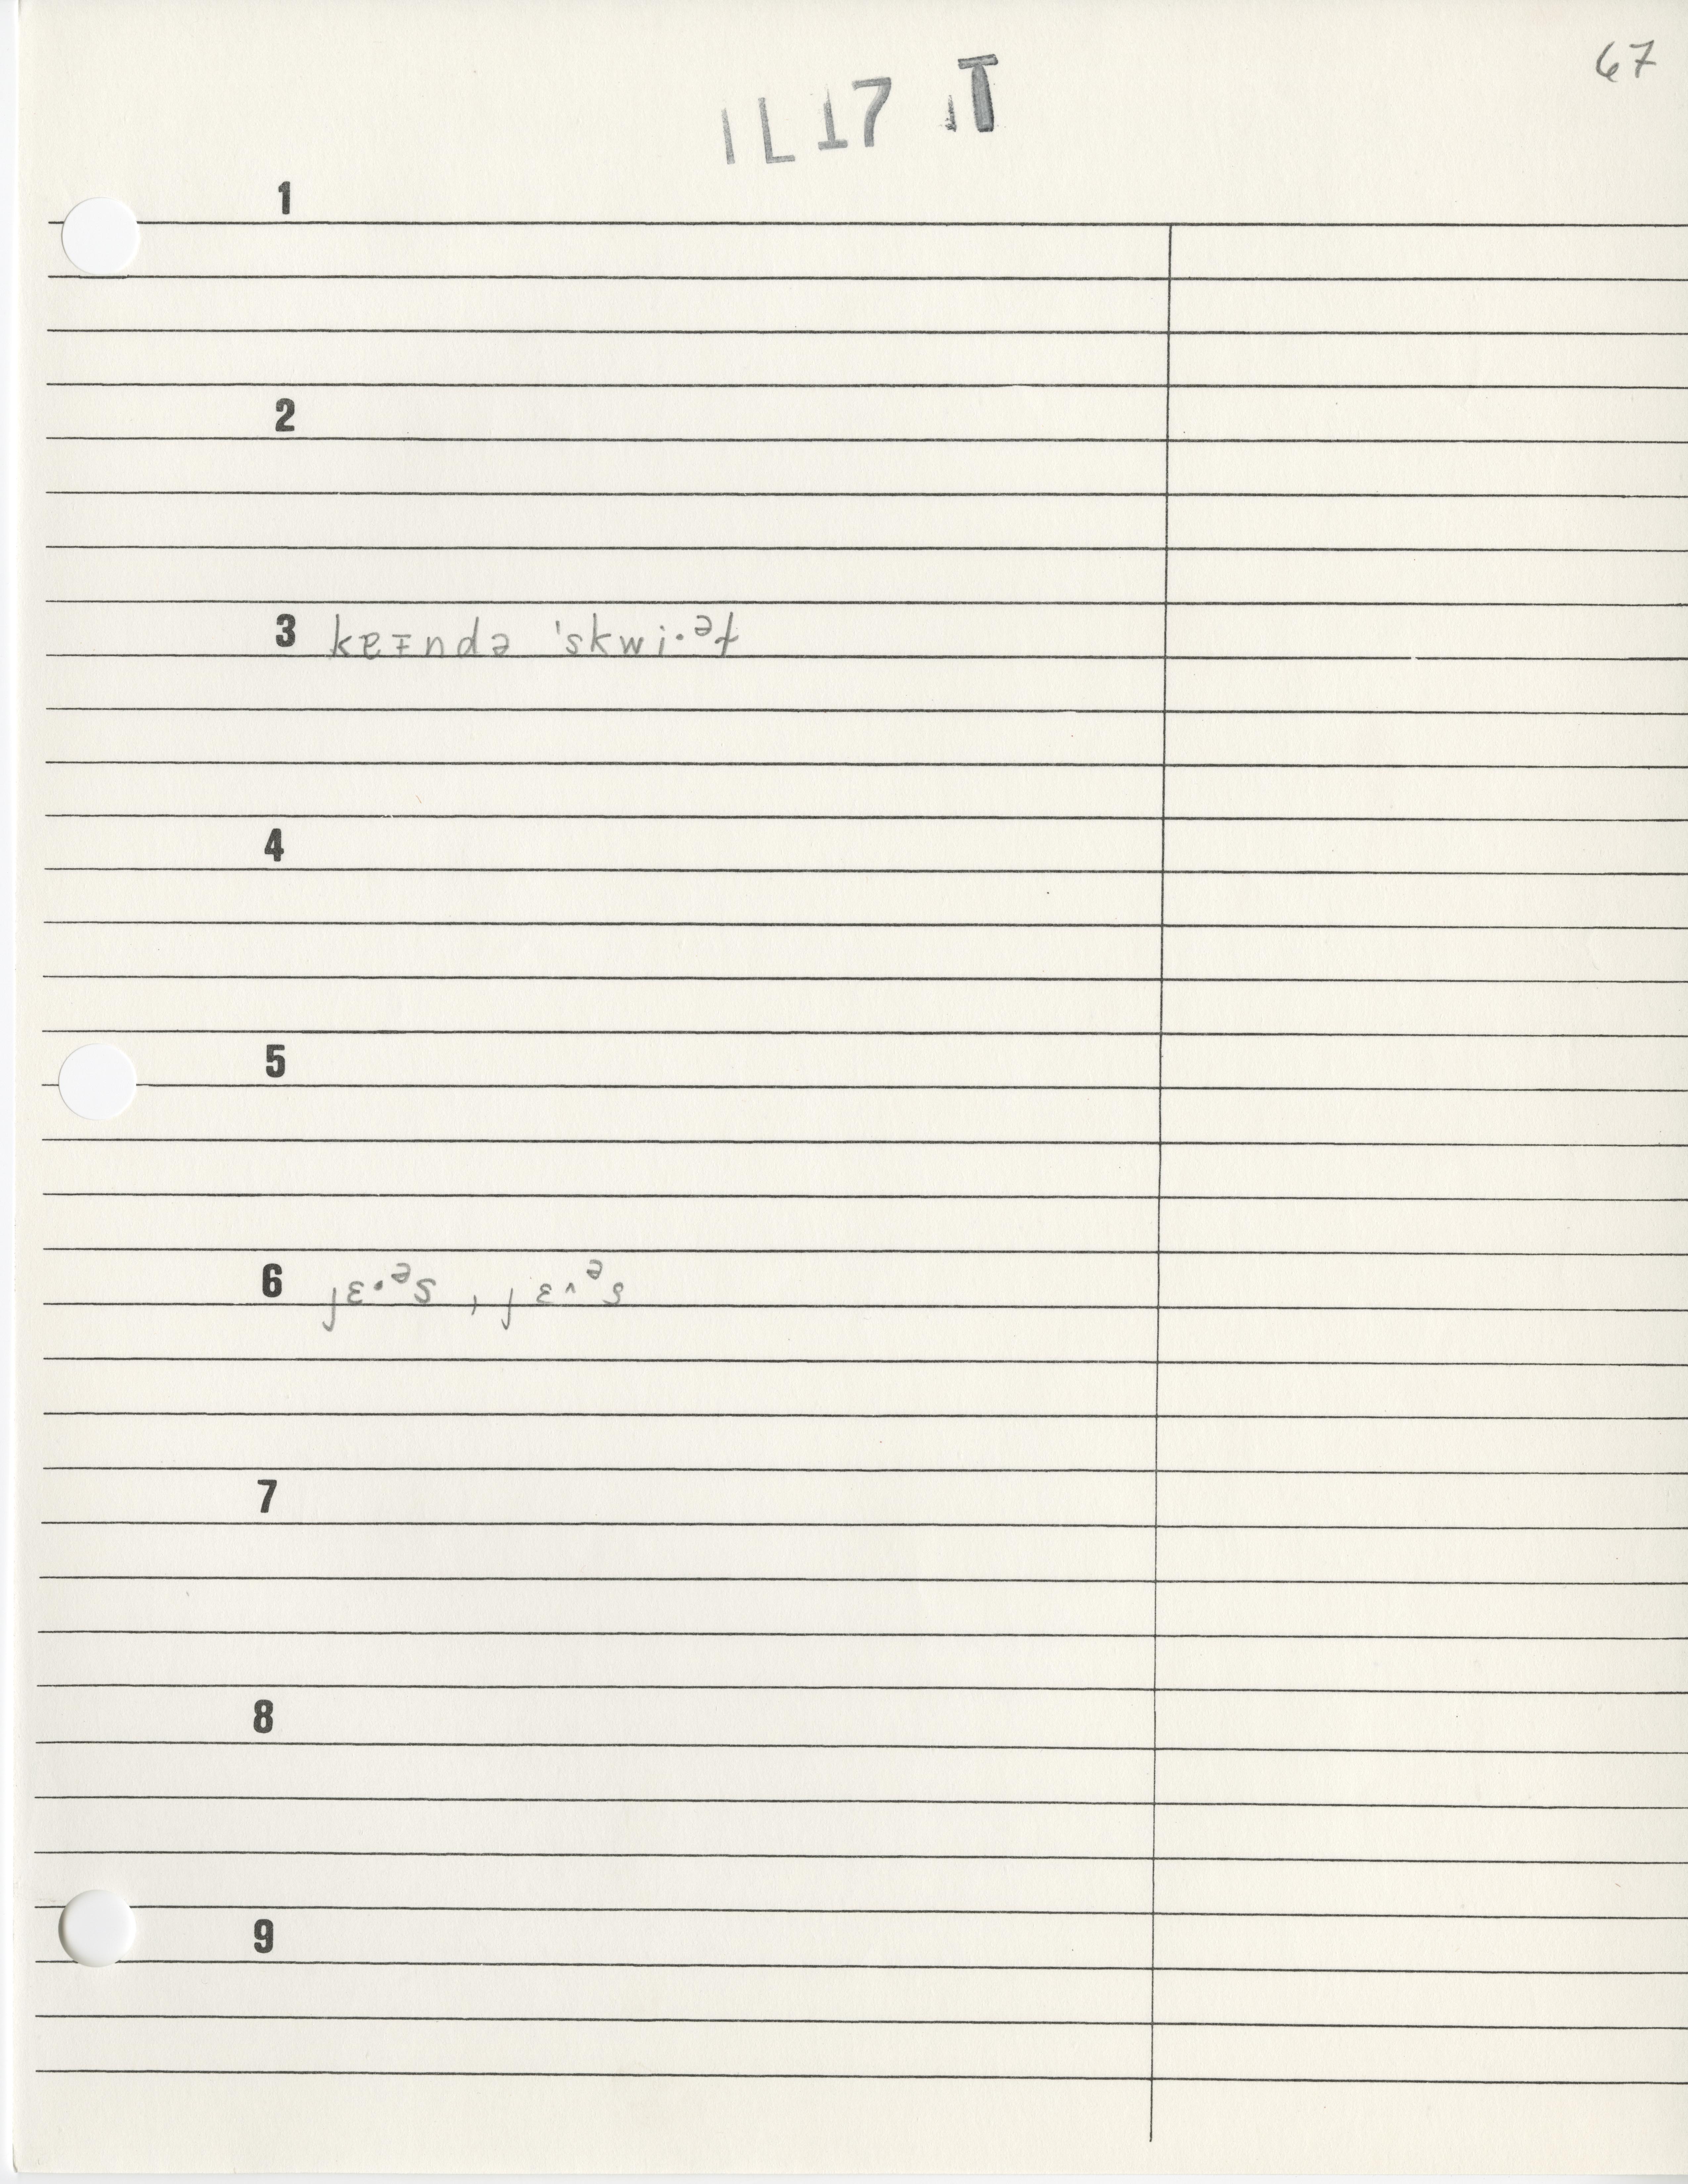 67
IL17 II
1
2
3 kɐɪndə ˈskwi·ᵊɫ
4
5
6 jɛ·ᵊs , jɛ˄ᵊs
7
8
9